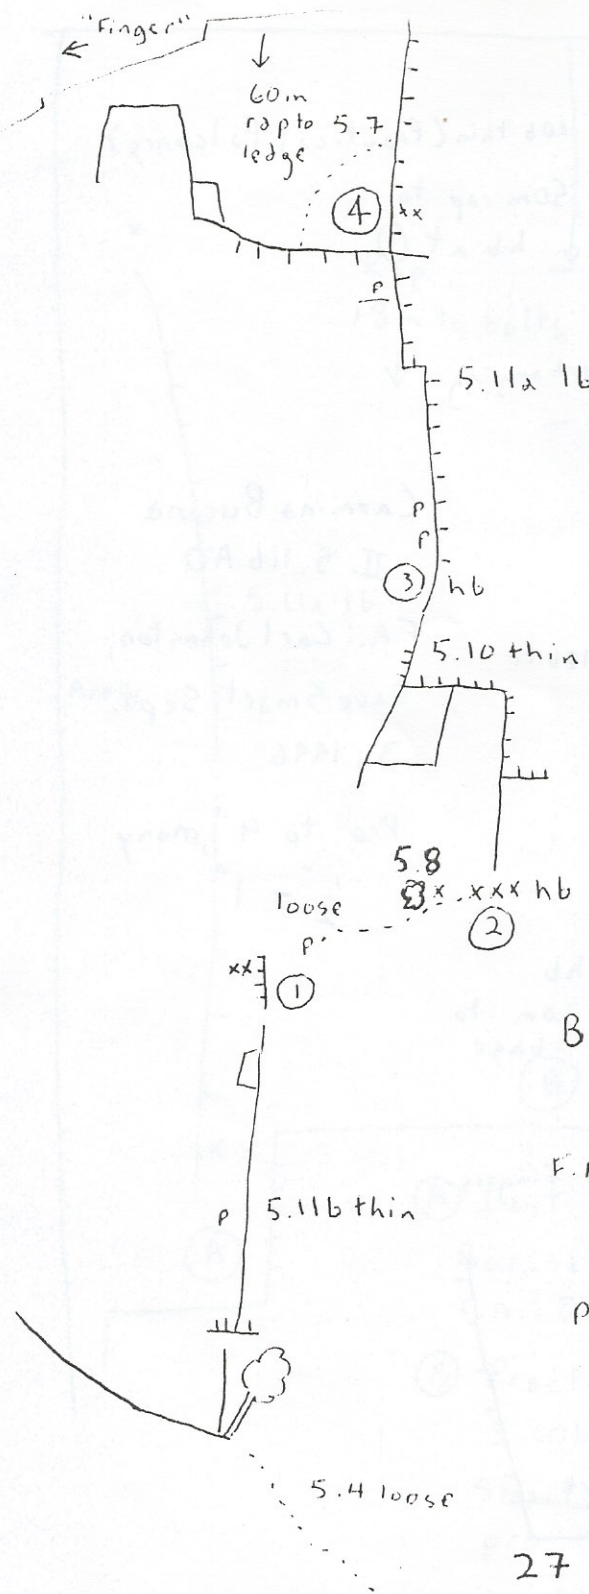 "Finger"
60m
rap to
ledge
5.7
4
xx
P
5.11a lb
P
P
3 hb
5.10 thin
5.8
x xxx hb
loose
2
P
xx
1
B
F.
P 5.11b thin
P
5.4 loose
27